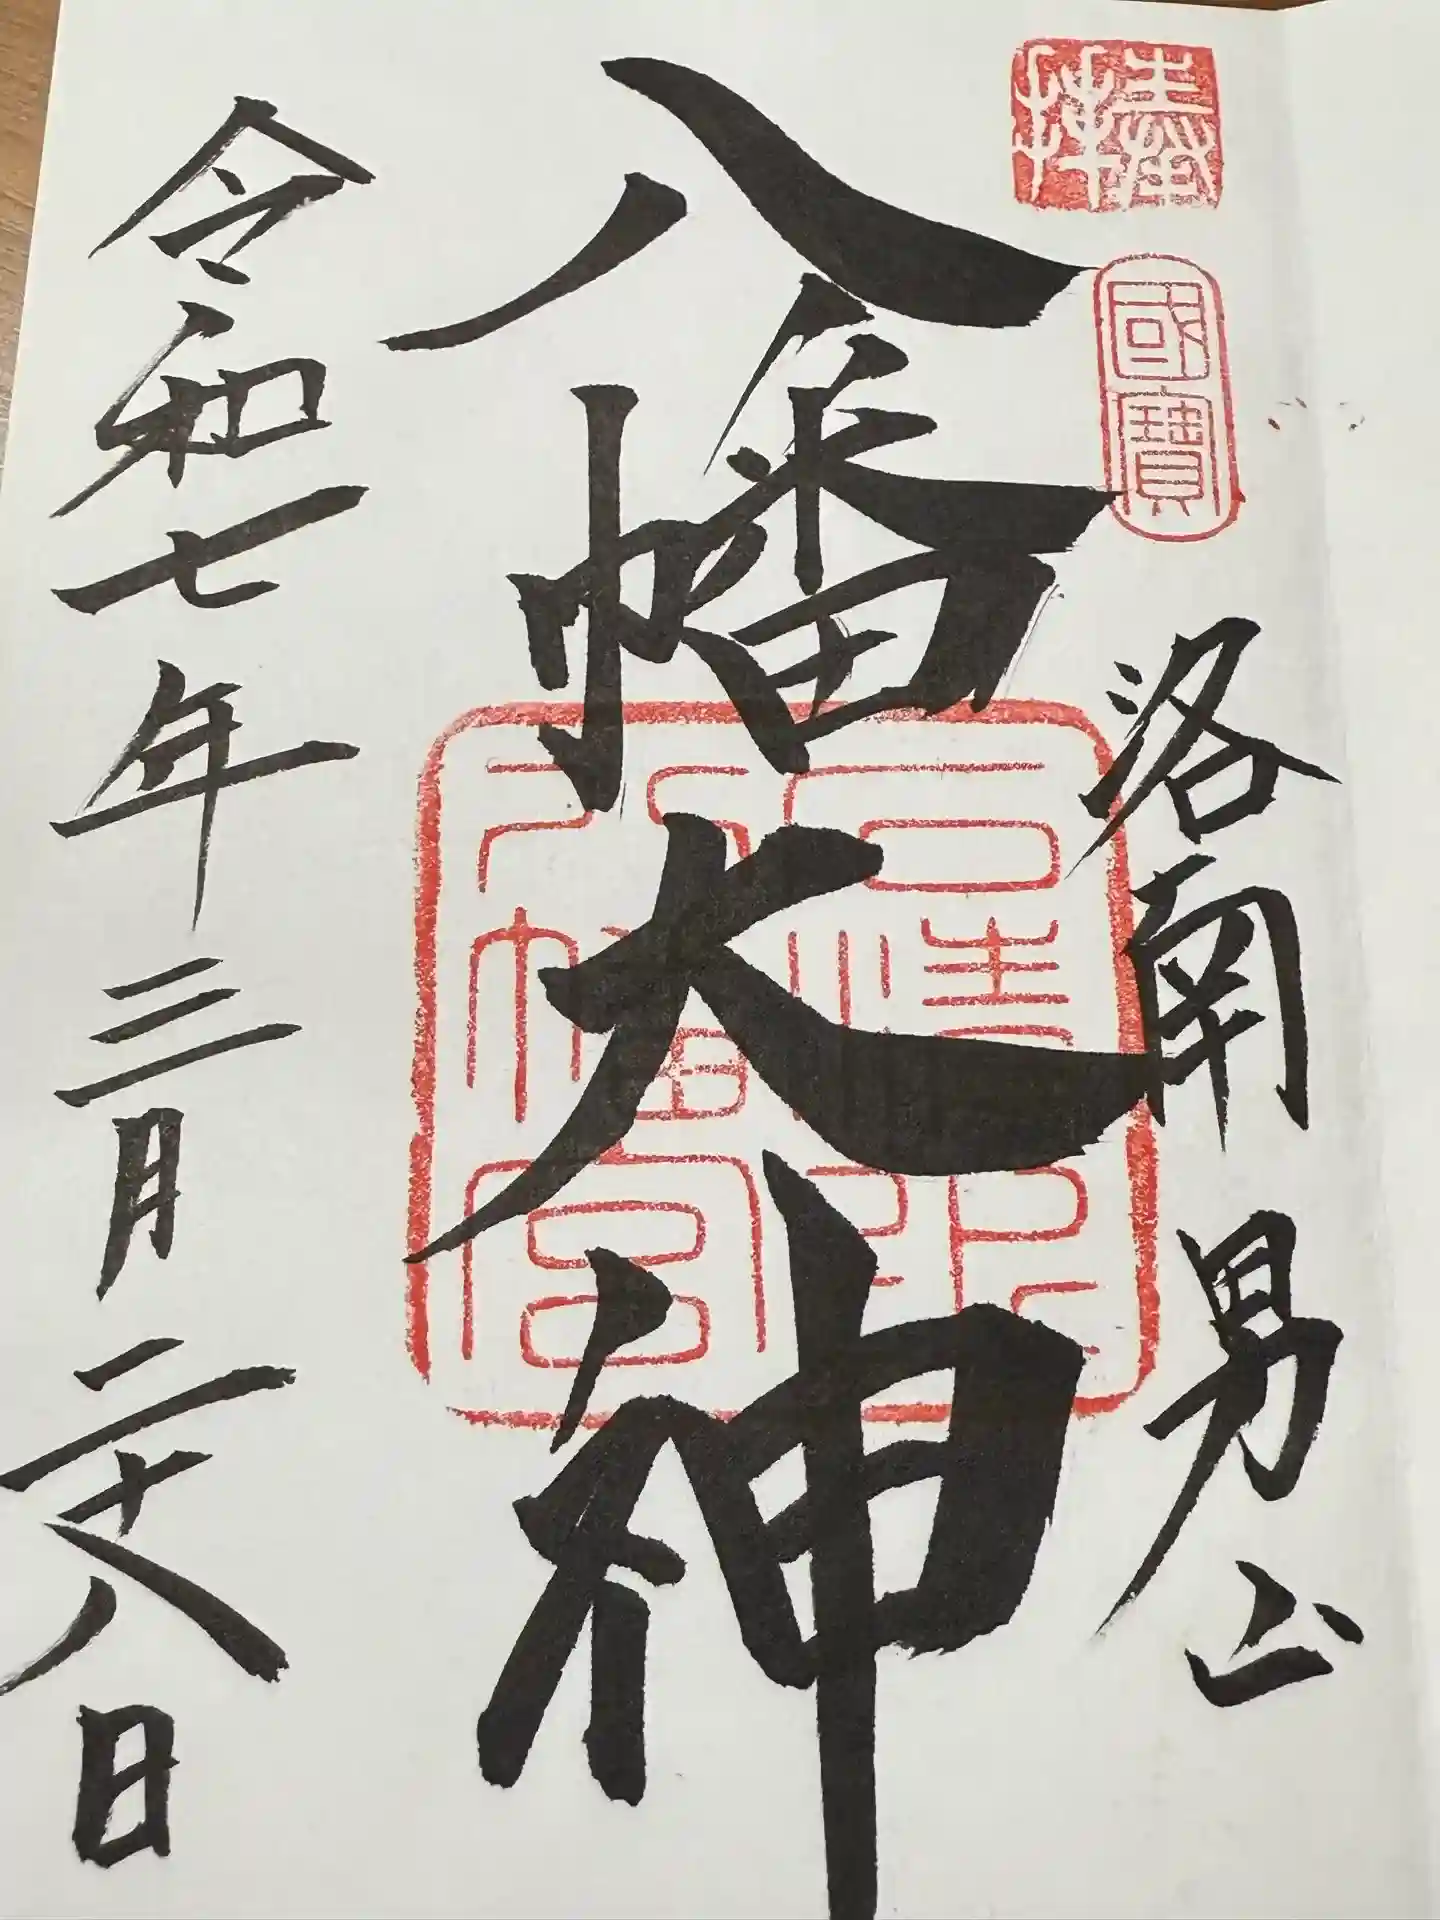 奉拜
國寶
洛南 男山
八幡大神
石清水
八幡宮
令和七年三月二十八日